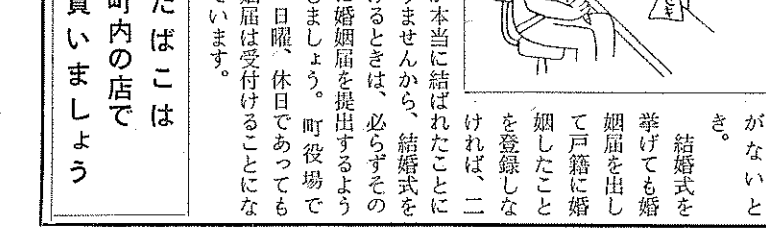 がないと
き。
結婚式を
挙げても婚
姻届を出し
て戸籍に婚
姻したこと
を登録しな
ければ、二
が本当に結ばれたことに
りませんから、結婚式を
けるときは、必らずその
に婚姻届を提出するよう
しましょう。町役場で
日曜、休日であっても
姻届は受付けることにな
ています。
たばこは
町内の店で
買いましょう